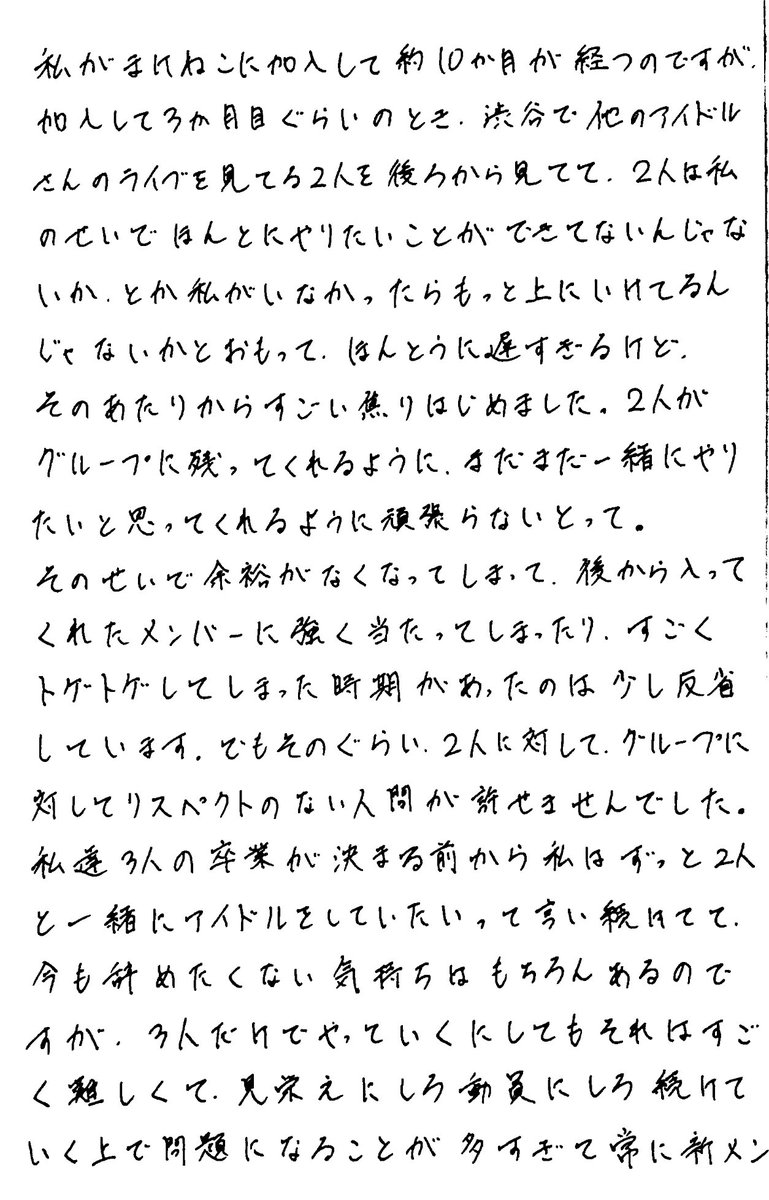 私がまけねこに加入して約10か月が経つのですが、
加入して3か月目ぐらいのとき、渋谷で他のアイドル
さんのライブを見てる2人を後ろから見てて、2人は私
のせいでほんとにやりたいことができてないんじゃな
いか、とか私がいなかったらもっと上にいけてるん
じゃないかとおもって、ほんとうに遅すぎるけど、
そのあたりからすごい焦りはじめました。2人が
グループに残ってくれるように、まだまだ一緒にやり
たいと思ってくれるように頑張らないとって。
そのせいで余裕がなくなってしまって、後から入って
くれたメンバーに強く当たってしまったり、すごく
トゲトゲしてしまった時期があったのは少し反省
しています。でもそのぐらい、2人に対して、グループに
対してリスペクトのない人間が許せませんでした。
私達3人の卒業が決まる前から私はずっと2人
と一緒にアイドルをしていたいって言い続けてて、
今も辞めたくない気持ちはもちろんあるので
すが、3人だけでやっていくにしてもそれはすご
く難しくて、見栄えにしろ動員にしろ続けて
いく上で問題になることが多すぎて常に新メン